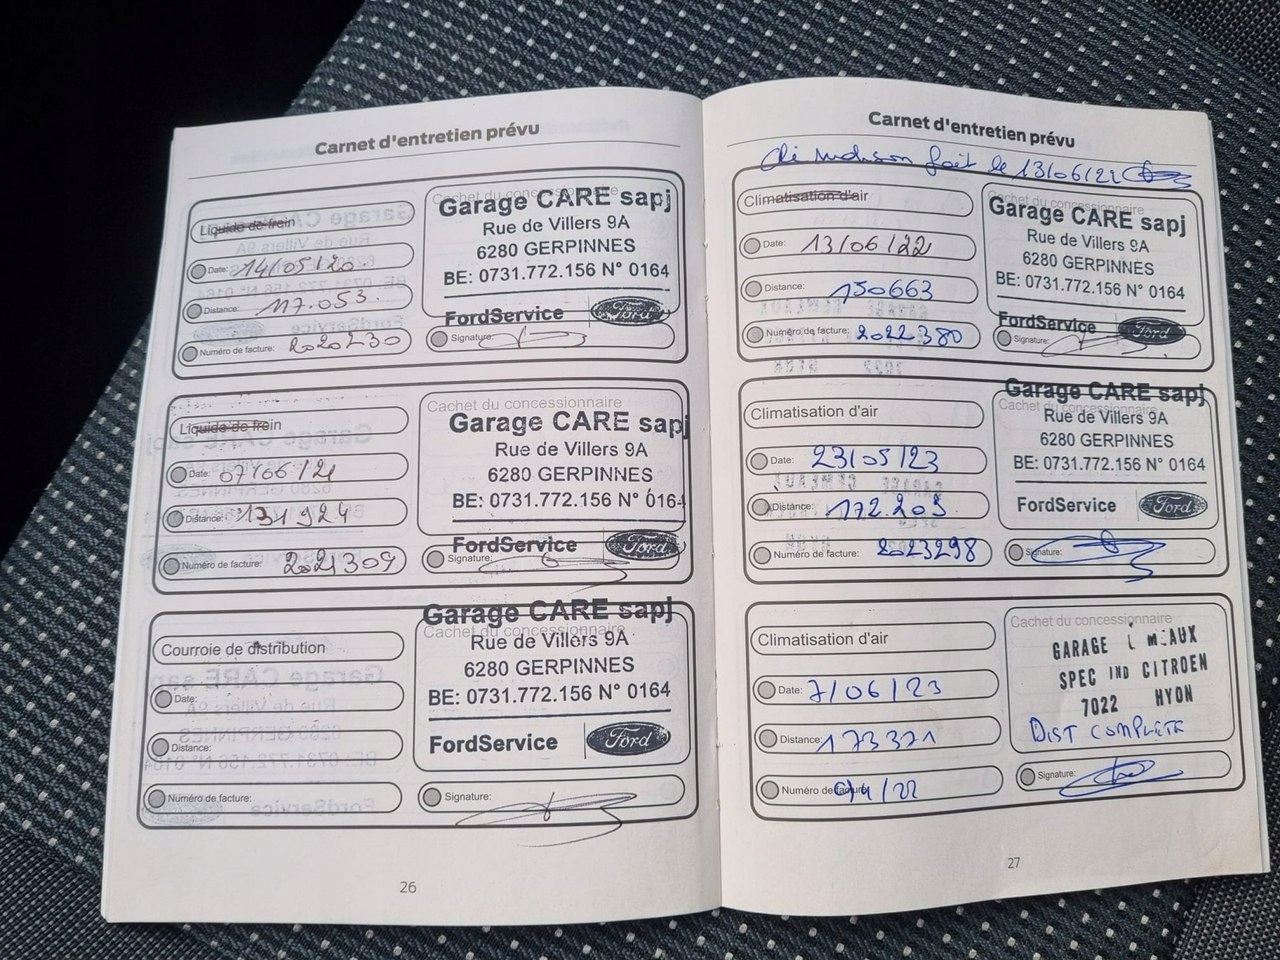 Carnet d'entretien prévu
Liquide de frein
Date: 14/05/20.
Distance: 117.053.
Numéro de facture: 2020230
Cachet du concessionnaire
Garage CARE sapj
Rue de Villers 9A
6280 GERPINNES
BE: 0731.772.156 N° 0164
FordService Ford
Signature:
Liquide de frein
Date: 07/06/21
Distance: 131924
Numéro de facture: 2021309
Cachet du concessionnaire
Garage CARE sapj
Rue de Villers 9A
6280 GERPINNES
BE: 0731.772.156 N° 0164
FordService Ford
Signature:
Courroie de distribution
Date:
Distance:
Numéro de facture:
Garage CARE sapj
Cachet du concessionnaire
Rue de Villers 9A
6280 GERPINNES
BE: 0731.772.156 N° 0164
FordService Ford
Signature:
26
Carnet d'entretien prévu
fait le 13/06/22
Climatisation d'air
Date: 13/06/22
Distance: 150663
Numéro de facture: 2022380
Cachet du concessionnaire
Garage CARE sapj
Rue de Villers 9A
6280 GERPINNES
BE: 0731.772.156 N° 0164
FordService Ford
Signature:
Climatisation d'air
Date: 23/05/23
Distance: 172.203
Numéro de facture: 2023298
Garage CARE sapj
Cachet du concessionnaire
Rue de Villers 9A
6280 GERPINNES
BE: 0731.772.156 N° 0164
FordService Ford
Signature:
Climatisation d'air
Date: 7/06/23
Distance: 173321
Numéro de facture:
Cachet du concessionnaire
GARAGE
SPEC IND CITROEN
7022 HYON
DIST COMPLETE
Signature:
27